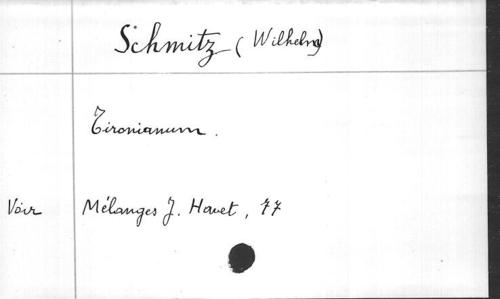 Schmitz (Wilhelm)
Tironianum.
Voir Mélanges J. Havet, 77